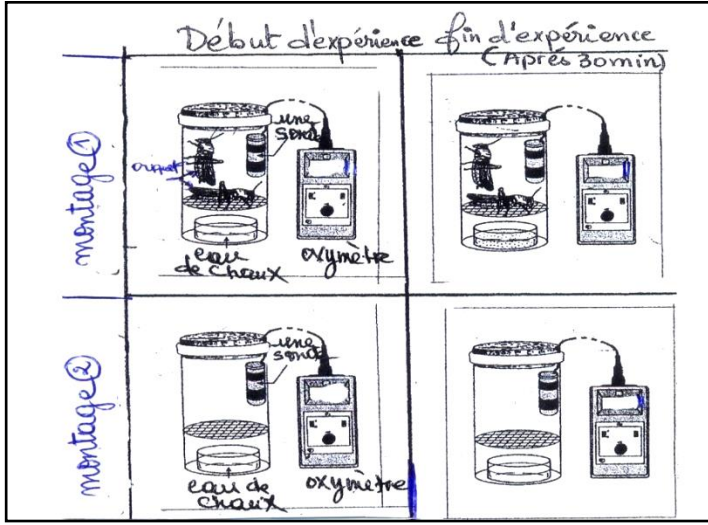 Début d'expérience fin d'expérience
(Après 30min)
montage ①
une
sonde
criquet
eau
de chaux
oxymètre
montage ②
une
sonde
eau de
chaux
oxymètre